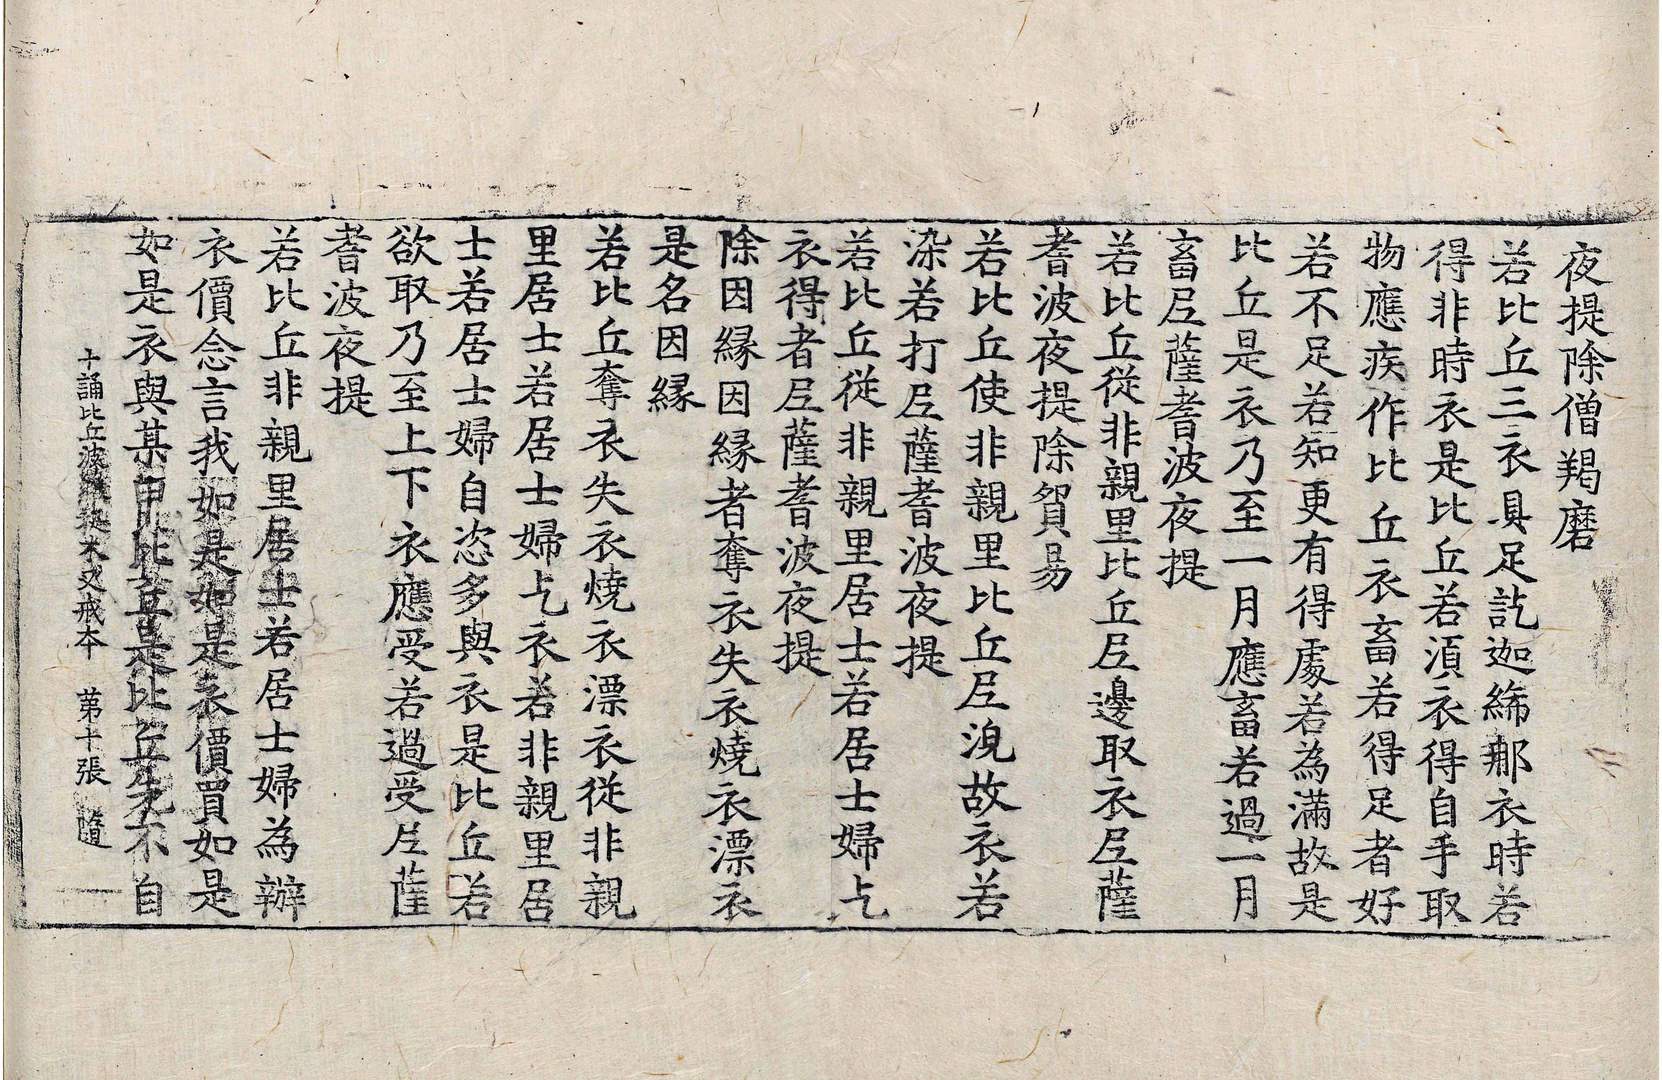 夜提除僧羯磨
若比丘三衣具足訖迦絺那衣時若
得非時衣是比丘若湏衣得自手取
物應疾作比丘衣畜若得足者好
若不足若知更有得處若為滿故是
比丘是衣乃至一月應畜若過一月
畜尼薩耆波夜提
若比丘從非親里比丘尼邊取衣尼薩
耆波夜提除貿易
若比丘使非親里比丘尼浣故衣若
染若打尼薩耆波夜提
若比丘從非親里居士若居士婦乞
衣得者尼薩耆波夜提
除因縁因縁者奪衣失衣燒衣漂衣
是名因縁
若比丘奪衣失衣燒衣漂衣從非親
里居士若居士婦乞衣若非親里居
士若居士婦自恣多與衣是比丘若
欲取乃至上下衣應受若過受尼薩
耆波夜提
若比丘非親里居士若居士婦為辦
衣價念言我如是如是衣價買如是
如是衣與某甲比丘是比丘先不自
十誦比丘波羅提木叉戒本 苐十張 隨